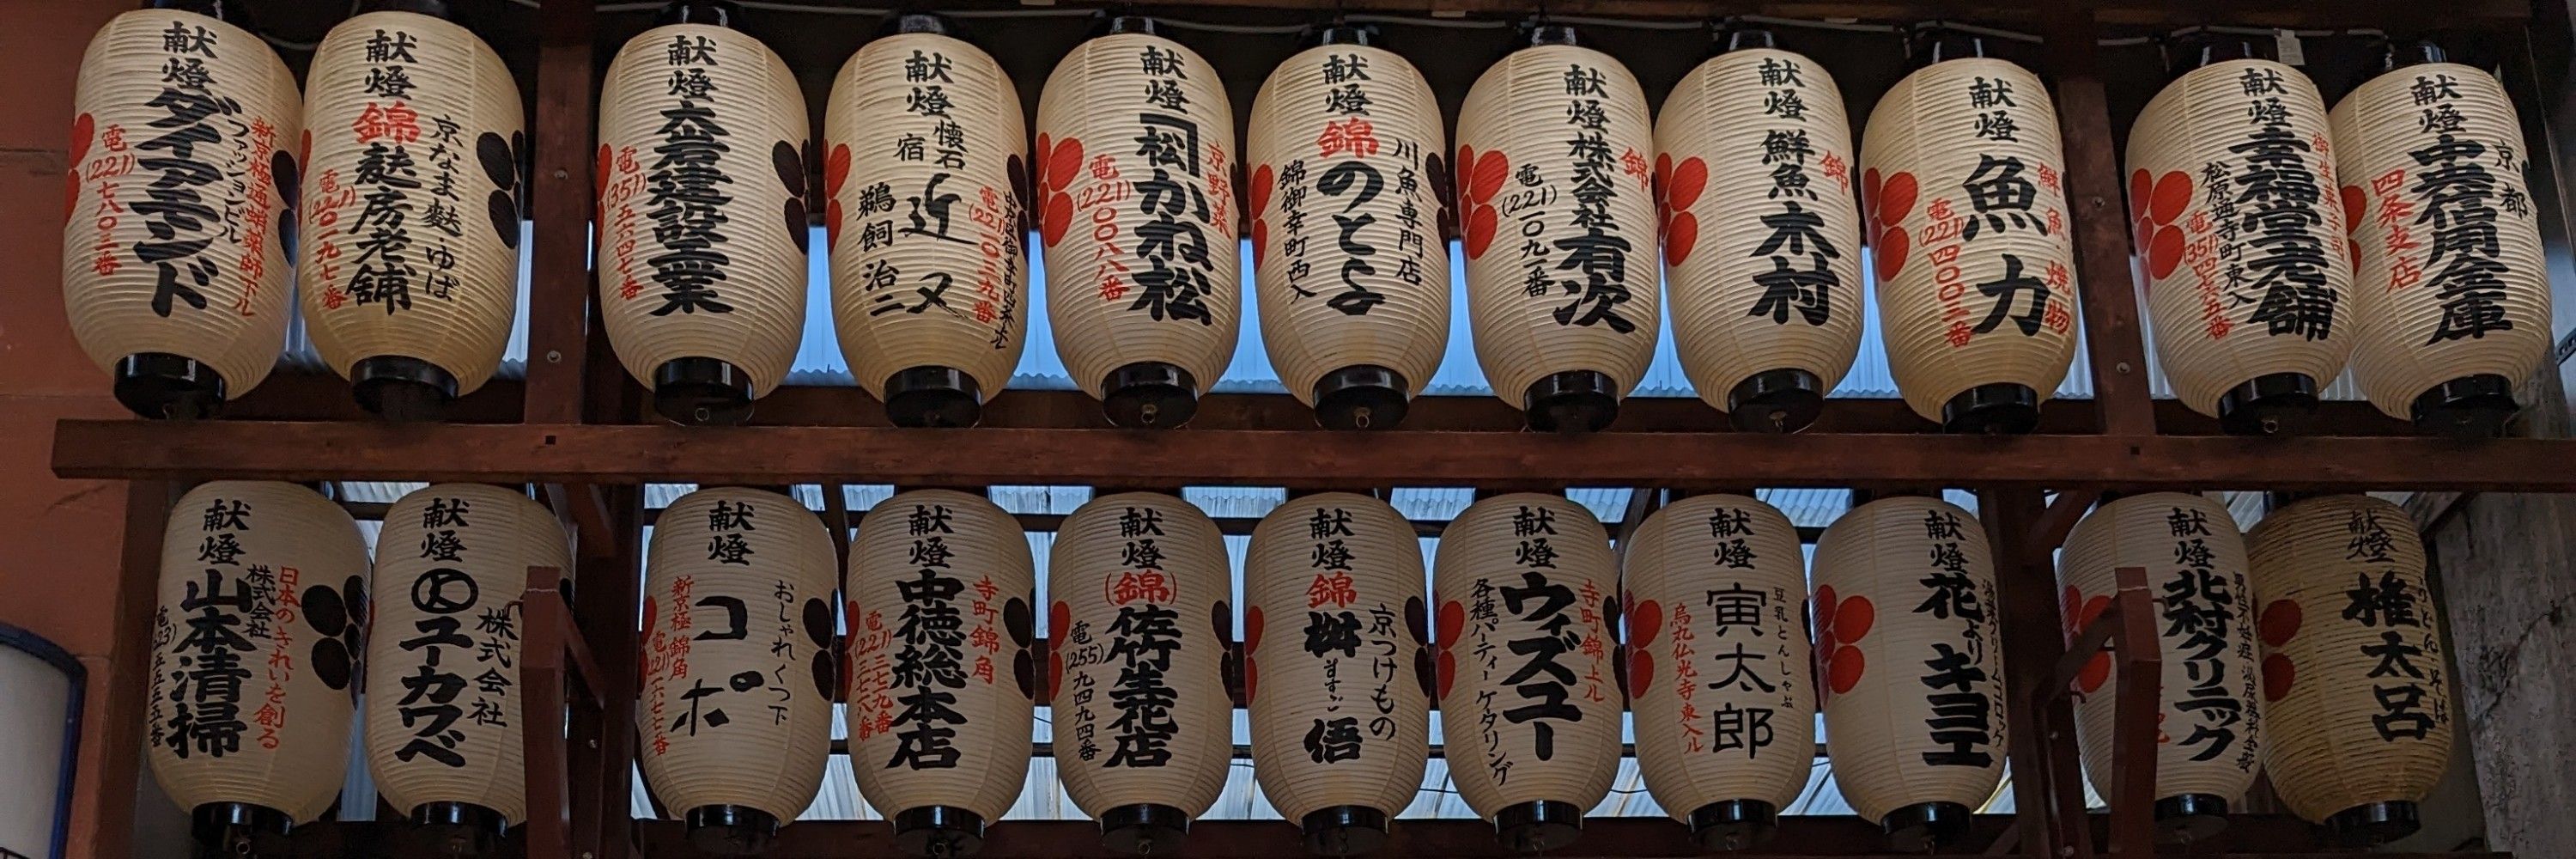 献燈
ダイアモンド
ファッションビル
新京極通蛸薬師下ル
電(221)七八〇三番
献燈
錦
麩房老舗
京なま麩 ゆば
献燈
六岩建設工業
電(351)五六四七番
献燈
懐石
宿
近又
鵜飼治二
献燈
京野菜
かね松
電(221)〇〇八八番
献燈
川魚専門店
錦
のとよ
錦御幸町西入
献燈
錦
株式会社
有次
電(221)一〇九一番
献燈
錦
鮮魚 木村
献燈
鮮魚 焼物
魚力
電(221)四〇〇三番
献燈
幸福堂老舗
松原通寺町東入
献燈
京都
中央信用金庫
四条支店
献燈
日本のきれいを創る
株式会社
山本清掃
献燈
株式会社
ユーカワベ
献燈
おしゃれくつ下
コポ
新京極錦角
献燈
寺町錦角
中徳総本店
献燈
(錦)
佐竹生花店
電(255)九四九四番
献燈
京つけもの
錦
桝悟
献燈
寺町錦上ル
ウィズユー
各種パーティーケータリング
献燈
豆乳とんしゃぶ
寅太郎
烏丸仏光寺東入ル
献燈
花より
キヨエ
献燈
北村クリニック
献燈
権太呂